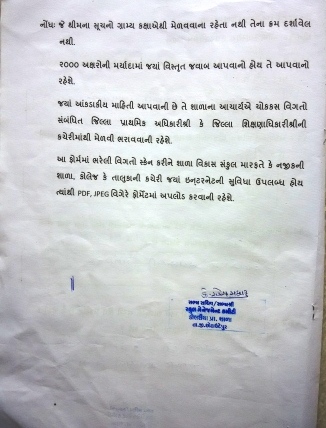 નોંધઃ જે થીમના સૂચનો ગ્રામ્ય કક્ષાએથી મેળવવાના રહેતા નથી તેના ક્રમ દર્શાવેલ
નથી.
૨૦૦૦ અક્ષરોની મર્યાદામાં જ્યાં વિસ્તૃત જવાબ આપવાનો હોય તે આપવાનો
રહેશે.
જ્યાં આંકડાકીય માહિતી આપવાની છે તે શાળાના આચાર્યએ ચોકકસ વિગતો
સંબંધિત જિલ્લા પ્રાથમિક અધિકારીશ્રી કે જિલ્લા શિક્ષણાધિકારીશ્રીની
કચેરીમાંથી મેળવી ભરાવવાની રહેશે.
આ ફોર્મમાં ભરેલી વિગતો સ્કેન કરીને શાળા વિકાસ સંકુલ મારફતે કે નજીકની
શાળા, કોલેજ કે તાલુકાની કચેરી જ્યાં ઇન્ટરનેટની સુવિધા ઉપલબ્ધ હોય
ત્યાંથી PDF, JPEG વિગેરે ફોર્મેટમાં અપલોડ કરવાની રહેશે.
સ્કુલ મેનેજમેન્ટ કમીટી
પ્રા. શાળા